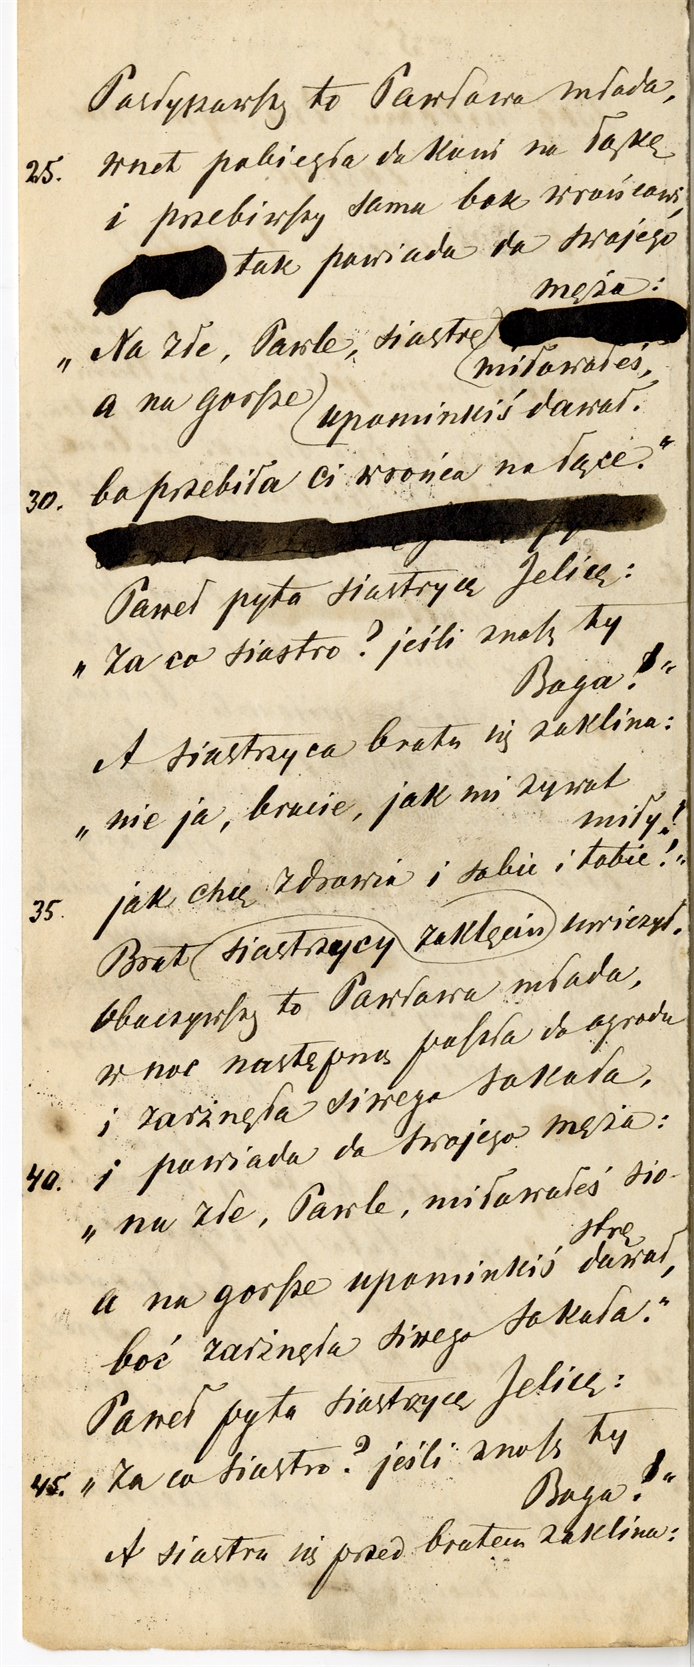 Posłyszawszy to Pawłowa młoda,
25. wnet pobiegła do koni na łąkę
i przebiwszy sama bok wrońcowi,
tak powiada do swojego
męża:
„Na złe, Pawle, siostrę
(miłowałeś,
a na gorsze) upominkiś dawał.
30. bo przebiła ci wrońca na łące."
Paweł pyta siostrycę Jelicę:
„Za co siostro? jeśli znasz ty
Boga!"
A siostrzyca bratu się zaklina:
„nie ja, bracie, jak mi żywot
miły!
35. jak chcę zdrowia i sobie i tobie!"
Brat siostrzycy zaklęciu uwierzył.
Obaczywszy to Pawłowa młoda,
w noc następną poszła do ogrodu
i zarżnęła siwego sokoła,
40. i powiada do swojego męża:
„na złe, Pawle, miłowałeś sio-
strę
a na gorsze upominkiś dawał,
boć zarżnęła siwego sokoła."
Paweł pyta siostrzycę Jelicę:
45. „Za co siostro? jeśli znasz ty
Boga!"
A siostra się przed bratem zaklina: